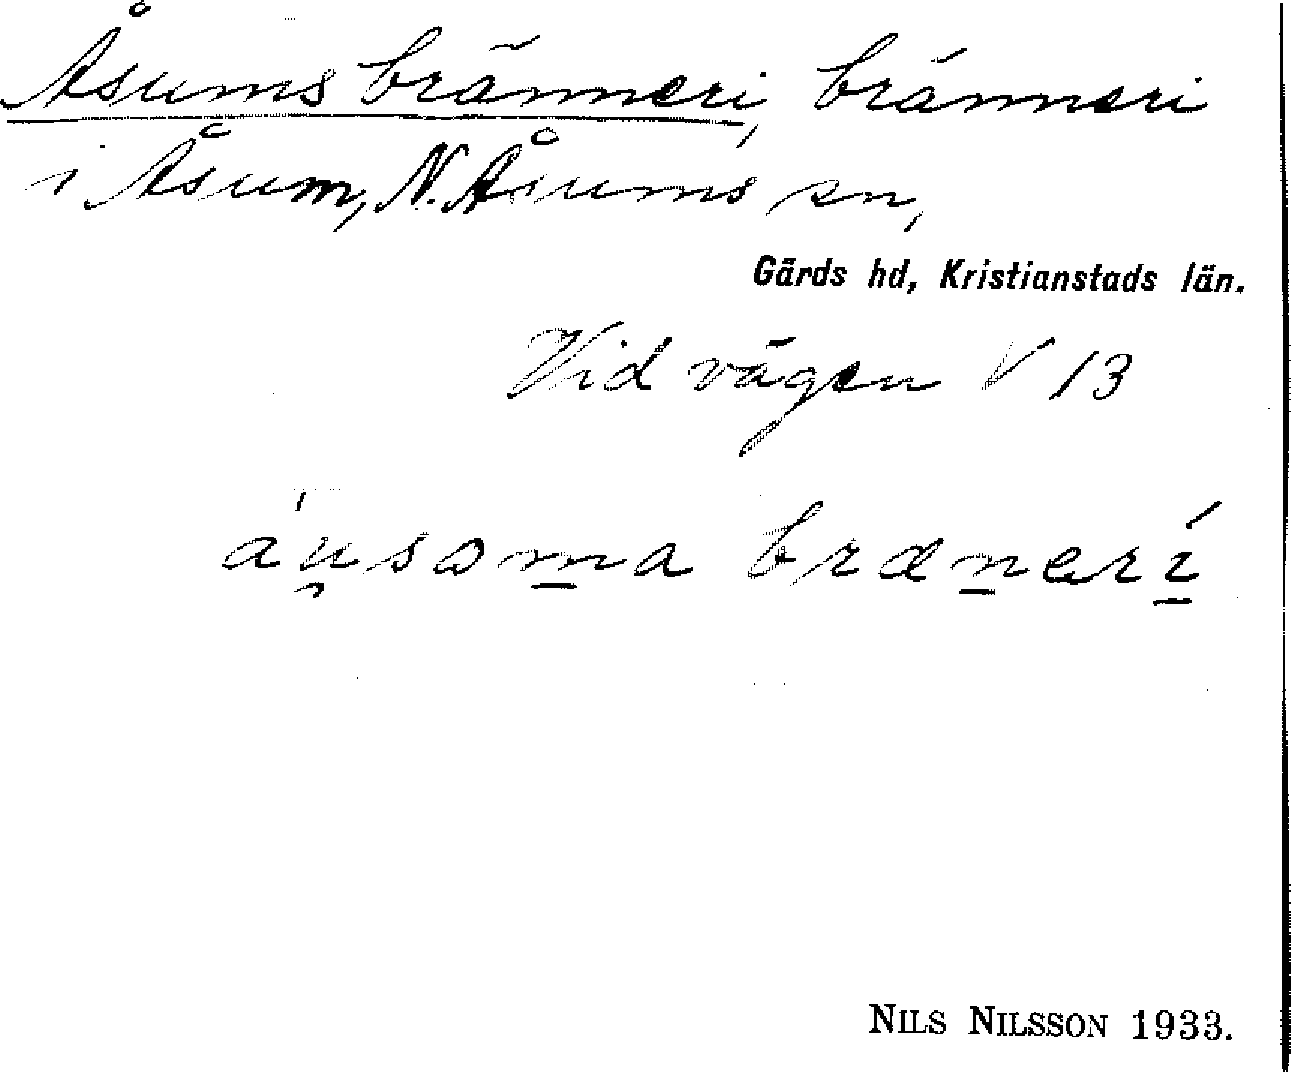 Åsums bränneri, bränneri
i Åsum, N. Åsums sn,
Gärds hd, Kristianstads län.
Vid vägen V 13
áu̯səm̠a bræn̠erí̠
NILS NILSSON 1933.